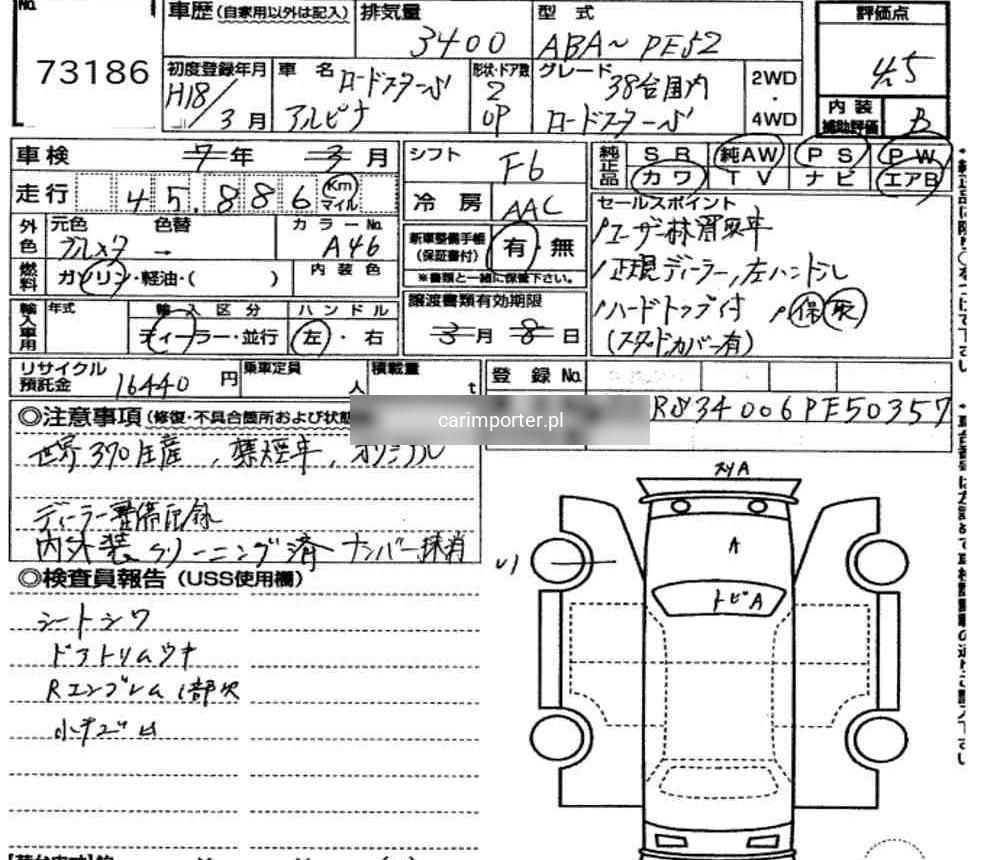 No.
73186
車歴(自家用以外は記入)
排気量
3400
型式
ABA~PE52
評価点
4.5
初度登録年月
H18/3月
車名
ロードスターS
アルピナ
形状・ドア数
2
OP
グレード
38台国内
ロードスターS
2WD
・
4WD
内装
補助評価
B
車検
7年 3月
シフト
F6
純正品
SR
純AW
PS
PW
カワ
TV
ナビ
エアB
走行
45,886
Km
マイル
冷房
AAC
セールスポイント
ユーザー様買取車
正規ディーラー,左ハンドル
ハードトップ付 保 取
(スタッドカバー有)
外色
元色
色替
カラーNo.
A46
新車整備手帳
(保証書付)
有・無
※書類と一緒に保管下さい。
燃料
ガソリン・軽油・( )
内装色
輸入車用
年式
輸入区分
ハンドル
ディーラー・並行
左・右
譲渡書類有効期限
3月 8日
リサイクル
預託金
16440円
乗車定員
人
積載量
t
登録No.
R834006PE50357
◎注意事項(修復・不具合箇所および状態
carimporter.pl
世界370生産,禁煙車,オリジナル
ディーラー整備記録
内外装クリーニング済 ナンバー抹消
◎検査員報告(USS使用欄)
シートシワ
ドアトリムウキ
Rエンブレム1部欠
小キズ凹
スリA
A
トビA